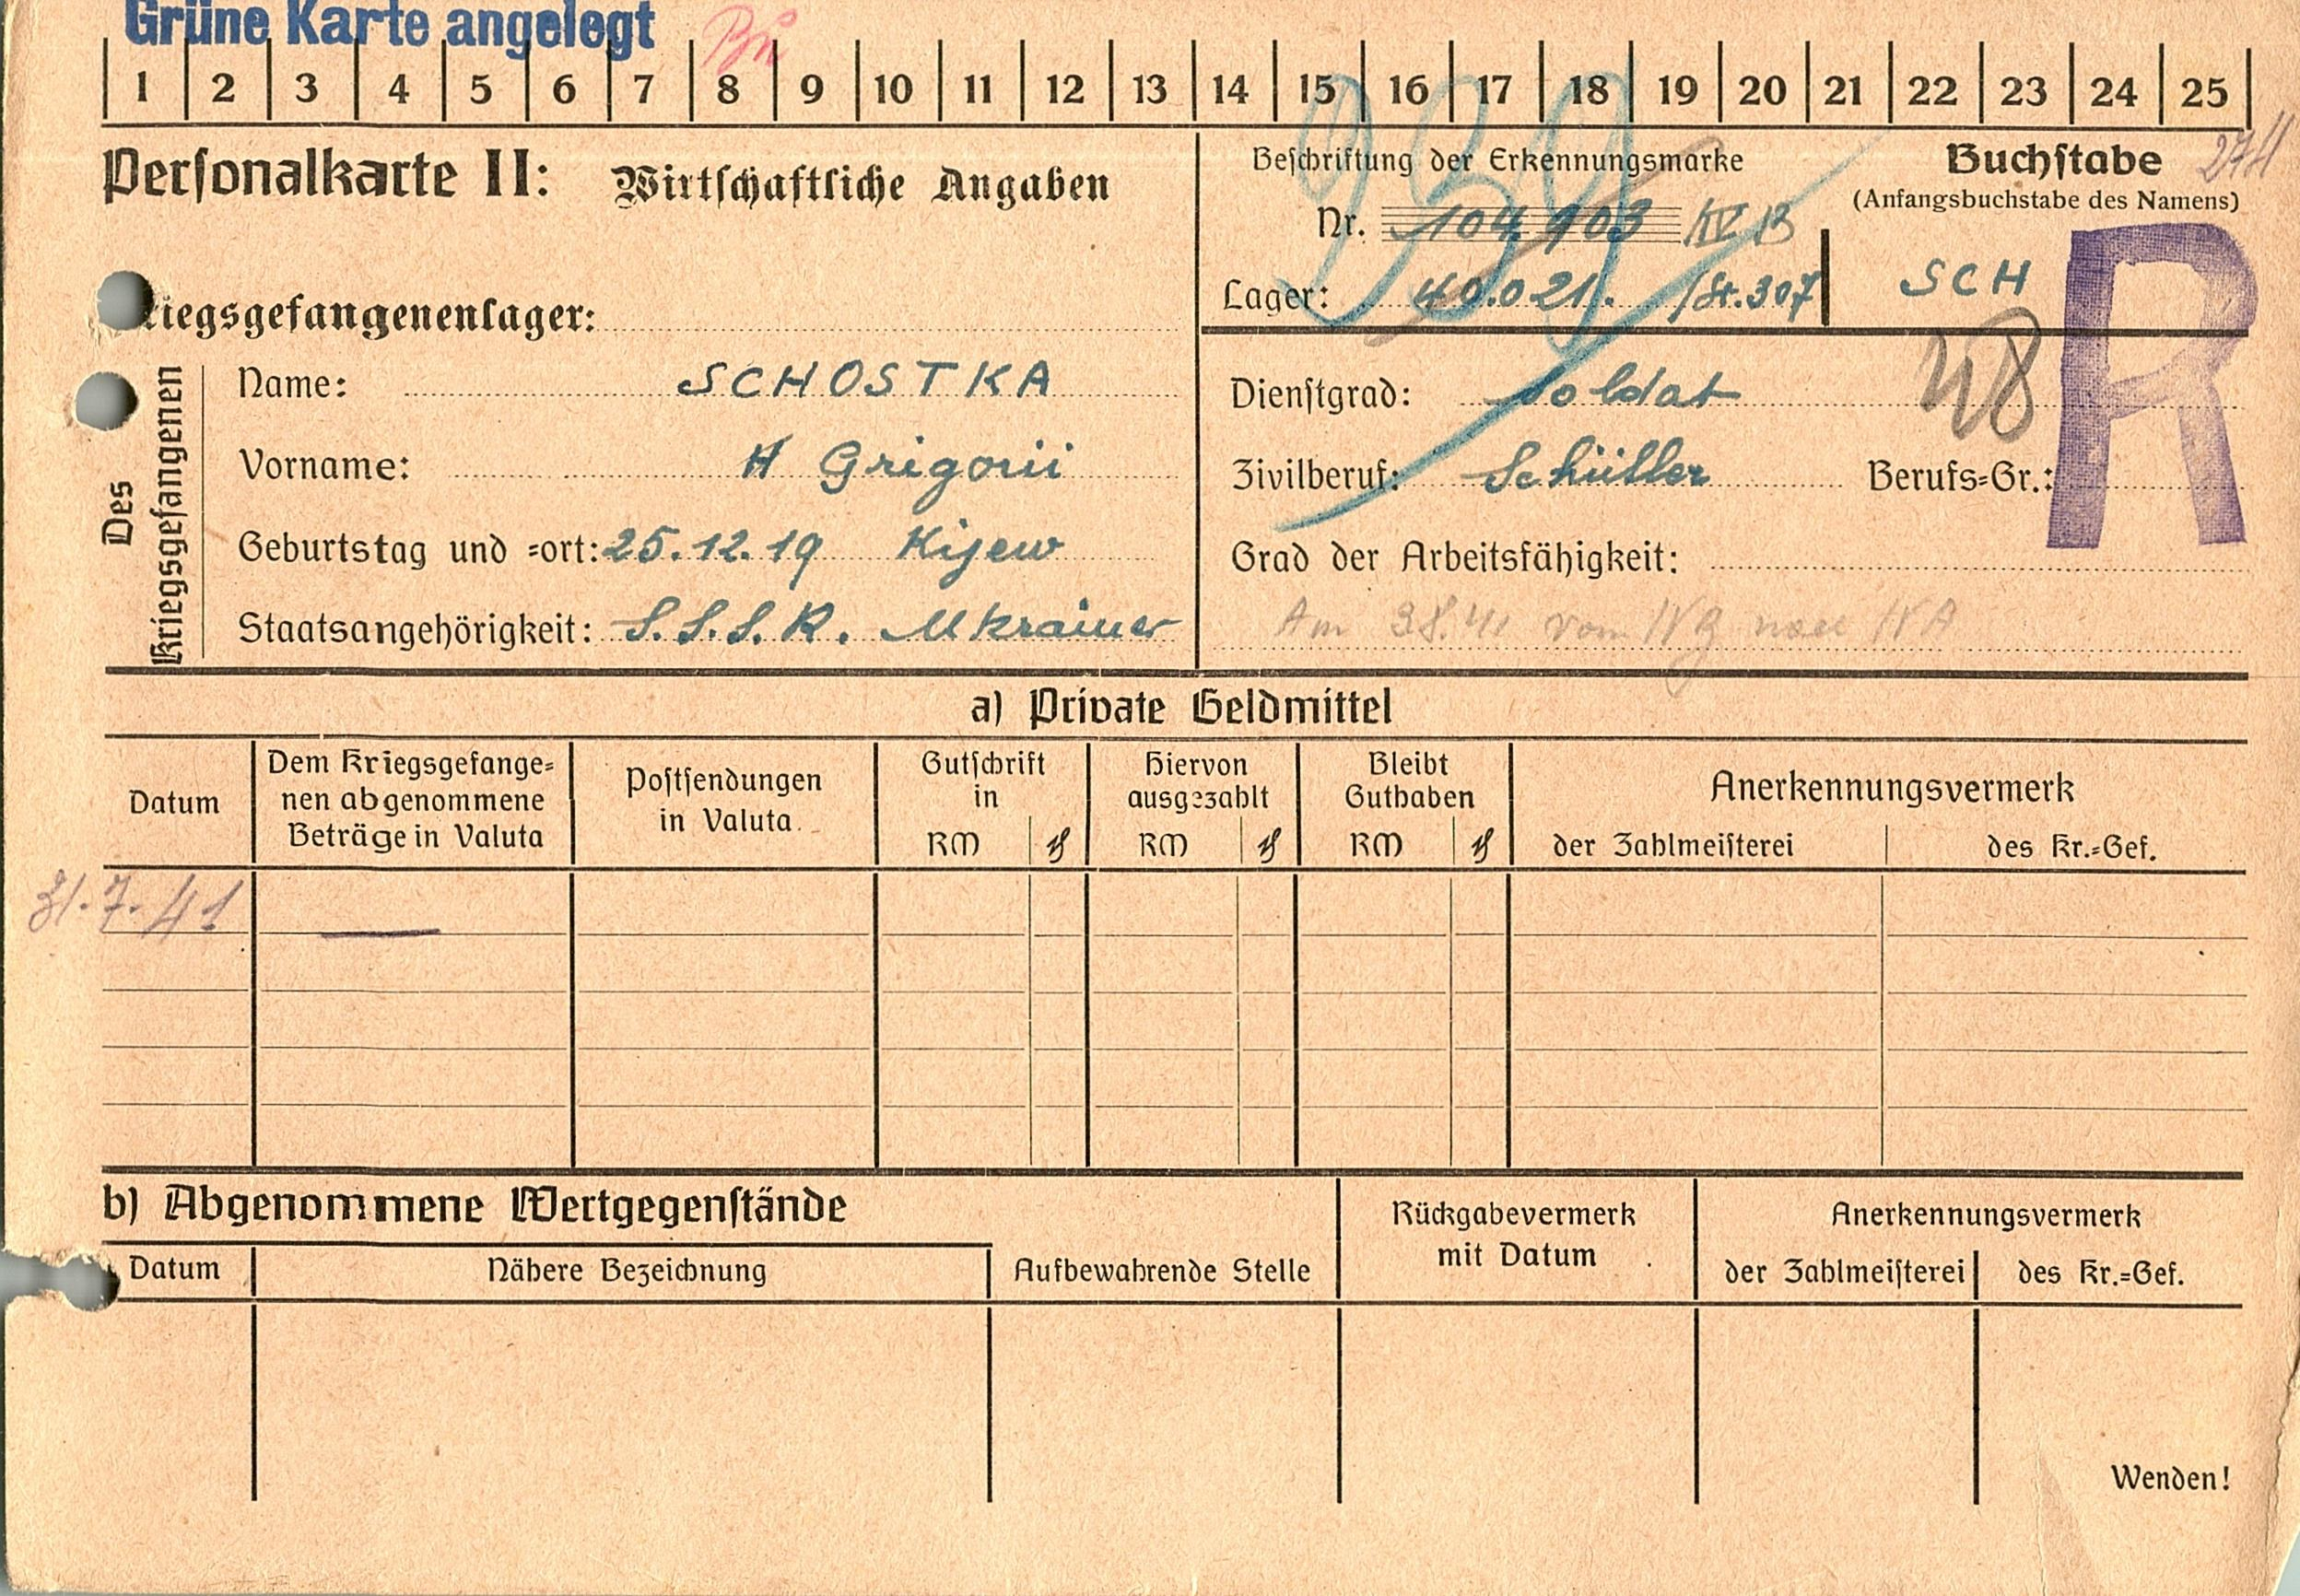 Grüne Karte angelegt
1 2 3 4 5 6 7 8 9 10 11 12 13 14 15 16 17 18 19 20 21 22 23 24 25
939
Personalkarte II: Wirtschaftliche Angaben
Beschriftung der Erkennungsmarke
Nr. 104 903 IV B
Lager: 40.021. /St.307
Buchstabe
(Anfangsbuchstabe des Namens)
SCH
R
riegsgefangenenlager:
Des Kriegsgefangenen
Name: SCHOSTKA
Vorname: Grigorii
Geburtstag und =ort: 25.12.19 Kijew
Staatsangehörigkeit: S.S.S.R. Ukrainer
Dienstgrad: Soldat
Zivilberuf: Schüller Berufs=Gr.:
Grad der Arbeitsfähigkeit:
Am 3.8.41 vom IV B nach IV A
a) Private Geldmittel
Datum
Dem Kriegsgefange=
nen abgenommene
Beträge in Valuta
Postsendungen
in Valuta
Gutschrift
in
RM ₰
Hiervon
ausgezahlt
RM ₰
Bleibt
Guthaben
RM ₰
Anerkennungsvermerk
der Zahlmeisterei des Kr.=Gef.
31.7.41 —
b) Abgenommene Wertgegenstände
Datum Nähere Bezeichnung Aufbewahrende Stelle
Rückgabevermerk
mit Datum
Anerkennungsvermerk
der Zahlmeisterei des Kr.=Gef.
Wenden!